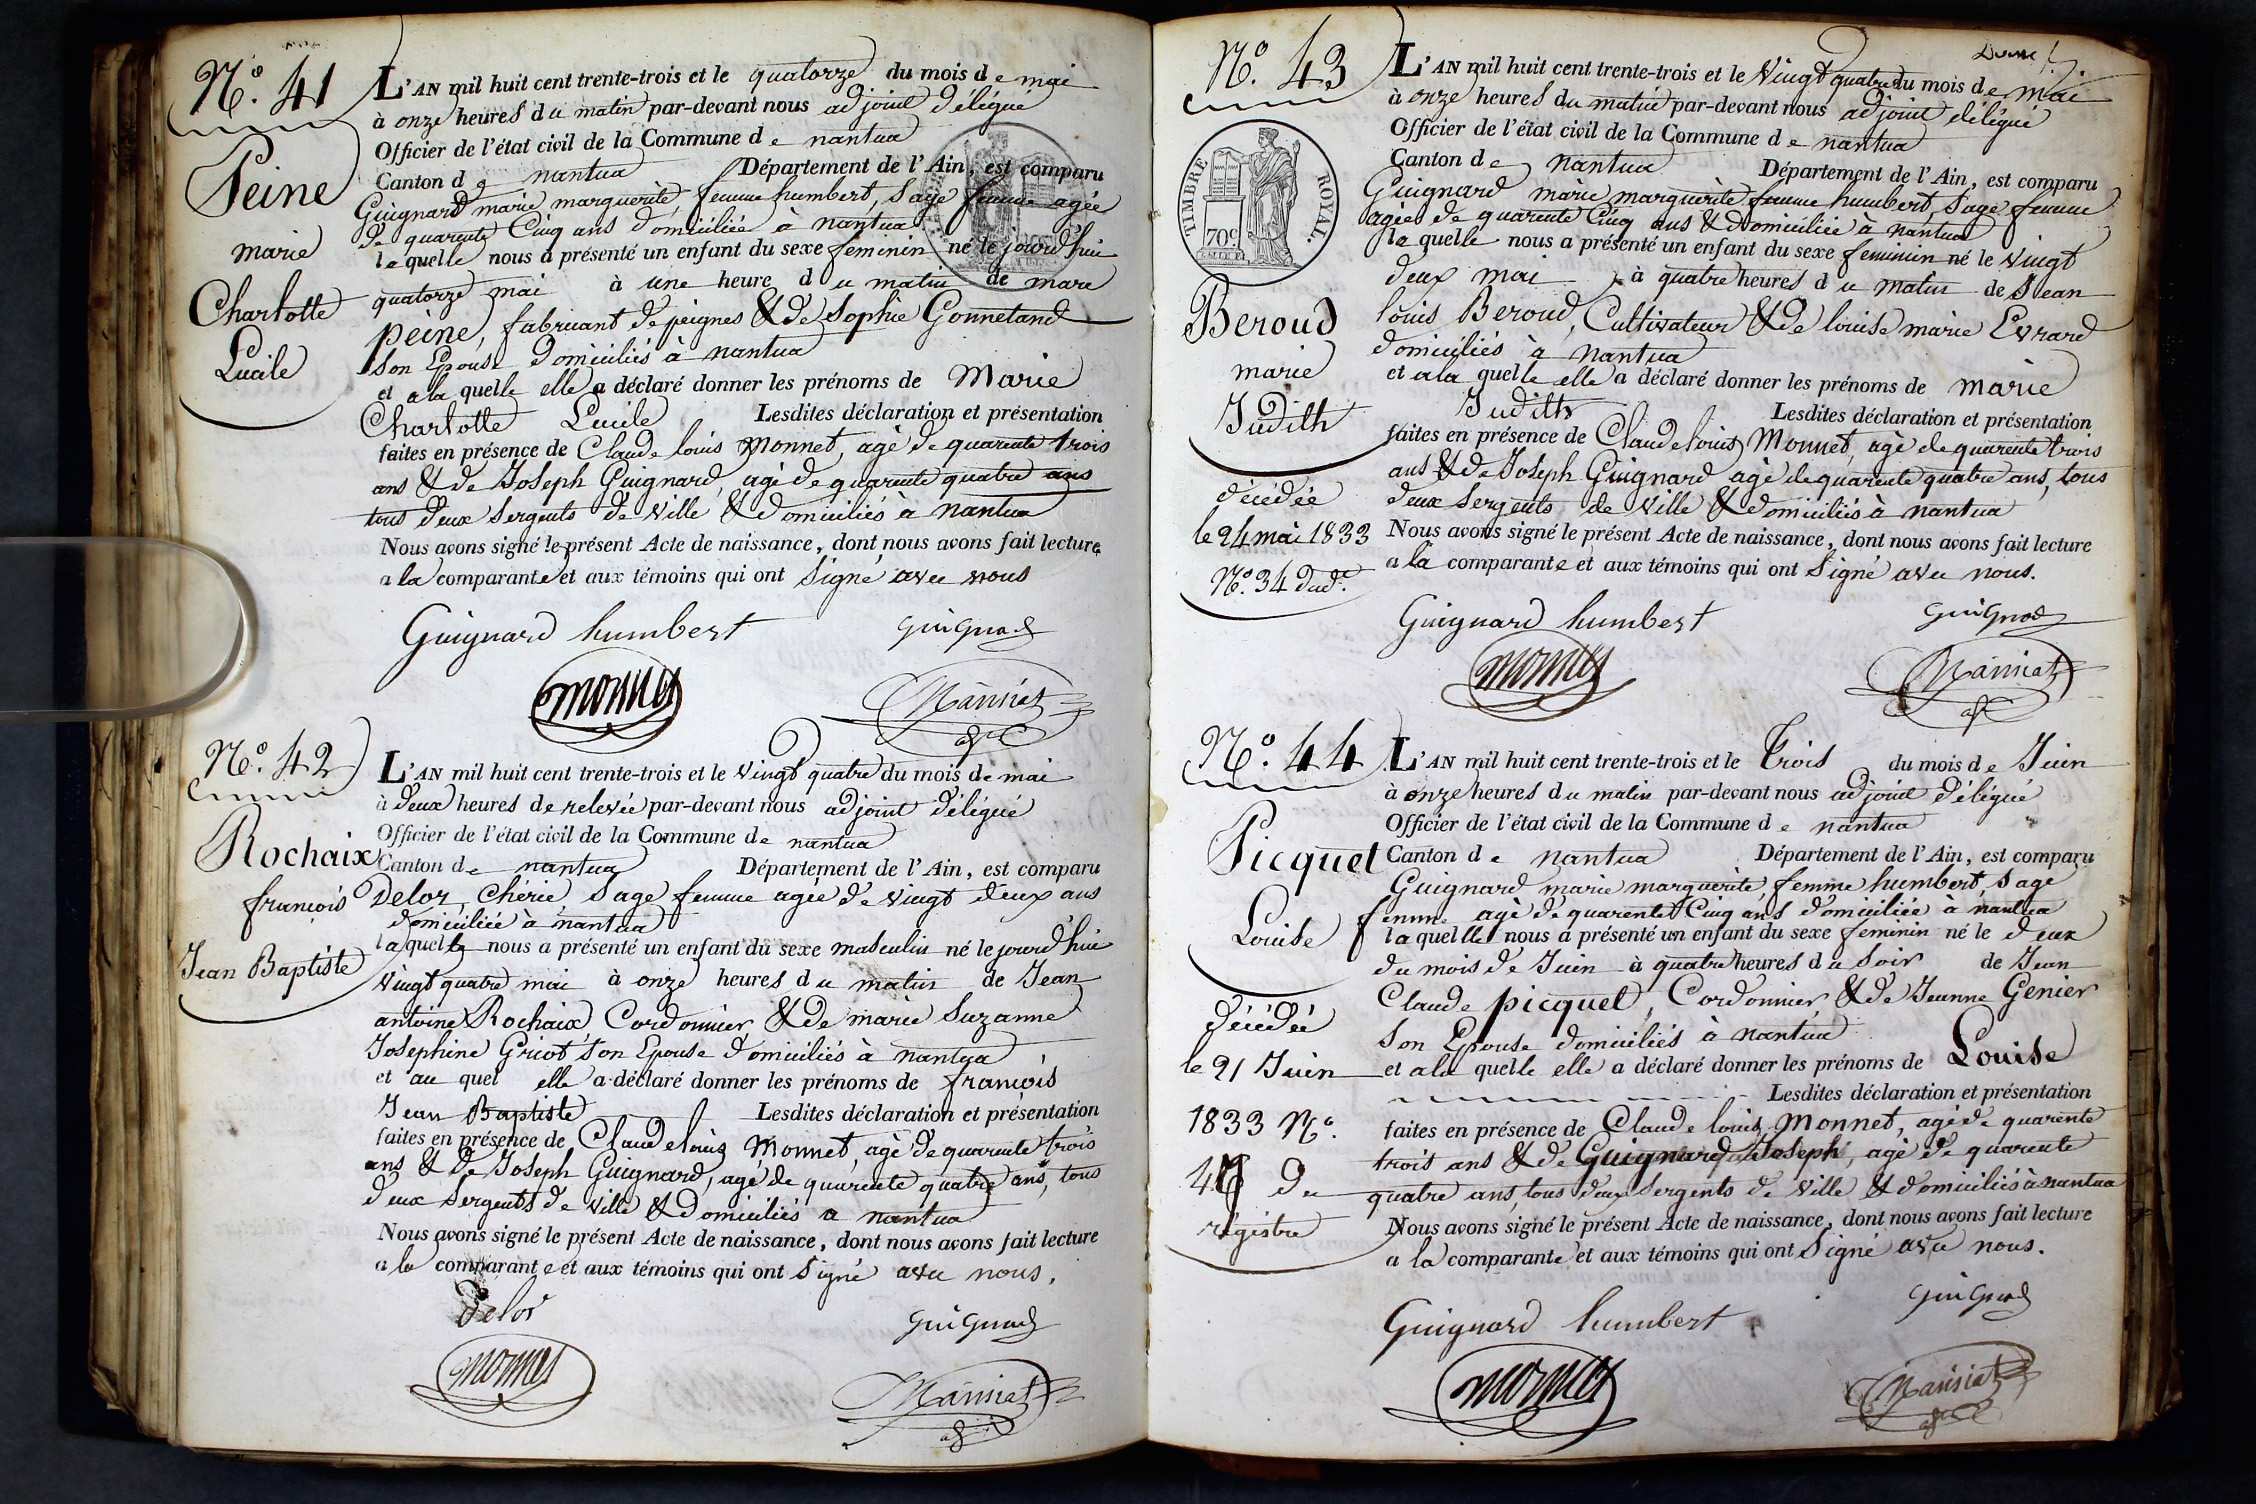 N.º 41
Peine
marie
Charlotte
Lucile
L'AN mil huit cent trente-trois et le quatorze du mois de mai
à onze heures du matin par-devant nous adjoint délégué
Officier de l'état civil de la Commune de nantua
Canton de nantua Département de l'Ain, est comparu
Guignard marie marguerite, femme humbert, sage femme agée
de quarente Cinq ans domiciliée à nantua
laquelle nous a présenté un enfant du sexe feminin né le jourd'hui
quatorze mai à une heure du matin de marc
peine, fabricant de peignes & de Sophie Gonnetand
son Epouse domiciliés à nantua
et a la quelle elle a déclaré donner les prénoms de Marie
Charlotte Lucile Lesdites déclaration et présentation
faites en présence de Claude louis Monnet, agé de quarente trois
ans & de Joseph Guignard, agé de quarente quatre ans
tous deux Sergents de Ville & domiciliés à nantua
Nous avons signé le présent Acte de naissance, dont nous avons fait lecture
a la comparante et aux témoins qui ont Signé avec nous
Guignard humbert Guignard
monnet Mansiat
N.º 42
Rochaix
françois
Jean Baptiste
L'AN mil huit cent trente-trois et le Vingt quatre du mois de mai
à deux heures de relevée par-devant nous adjoint délégué
Officier de l'état civil de la Commune de nantua
Canton de nantua Département de l'Ain, est comparu
Delor, Chérie, Sage femme agée de Vingt deux ans
domiciliée à nantua
laquelle nous a présenté un enfant du sexe masculin né le jourd'hui
Vingt quatre mai à onze heures du matin de Jean
antoine Rochaix, Cordonnier & de marie Suzanne
Josephine Gricot son Epouse domiciliés à nantua
et au quel elle a déclaré donner les prénoms de françois
Jean Baptiste Lesdites déclaration et présentation
faites en présence de Claude louis Monnet, agé de quarente trois
ans & de Joseph Guignard, agé de quarente quatre ans, tous
deux Sergents de Ville & domiciliés a nantua
Nous avons signé le présent Acte de naissance, dont nous avons fait lecture
a la comparante et aux témoins qui ont Signé avec nous.
Delor Guignard
monnet Mansiat
N.º 43
TIMBRE ROYAL.
70c
Beroud
marie
Judith
décédée
le 24 mai 1833
N.º 34 dud.
L'AN mil huit cent trente-trois et le Vingt quatre du mois de mai
à onze heures du matin par-devant nous adjoint délégué
Officier de l'état civil de la Commune de nantua
Canton de nantua Département de l'Ain, est comparu
Guignard marie marguerite femme humbert, Sage femme
agée de quarente Cinq ans & domiciliée à nantua
laquelle nous a présenté un enfant du sexe feminin né le Vingt
deux mai à quatre heures du matin de Jean
louis Beroud, Cultivateur & de louise marie Evrard
domiciliés à nantua
et a la quelle elle a déclaré donner les prénoms de marie
Judith Lesdites déclaration et présentation
faites en présence de Claude louis Monnet, agé de quarente trois
ans & de Joseph Guignard agé de quarente quatre ans, tous
deux Sergents de Ville & domiciliés à nantua
Nous avons signé le présent Acte de naissance, dont nous avons fait lecture
a la comparante et aux témoins qui ont Signé avec nous.
Guignard humbert Guignard
monnet Mansiat
N.º 44
Picquet
Louise
décédée
le 21 Juin
1833 N.º
du
régistre
L'AN mil huit cent trente-trois et le Trois du mois de Juin
à onze heures du matin par-devant nous adjoint délégué
Officier de l'état civil de la Commune de nantua
Canton de nantua Département de l'Ain, est comparu
Guignard marie marguerite, femme humbert, Sage
femme agé de quarente Cinq ans domiciliée à nantua
laquelle nous a présenté un enfant du sexe feminin né le deux
du mois de Juin à quatre heures du Soir de Jean
Claude picquet, Cordonnier & de Jeanne Genier
Son Epouse domiciliés à nantua
et a la quelle elle a déclaré donner les prénoms de Louise
Lesdites déclaration et présentation
faites en présence de Claude louis Monnet, agé de quarente
trois ans & de Guignard Joseph, agé de quarente
quatre ans, tous deux Sergents de Ville & domiciliés à nantua
Nous avons signé le présent Acte de naissance, dont nous avons fait lecture
a la comparante et aux témoins qui ont Signé avec nous.
Guignard humbert Guignard
monnet Mansiat